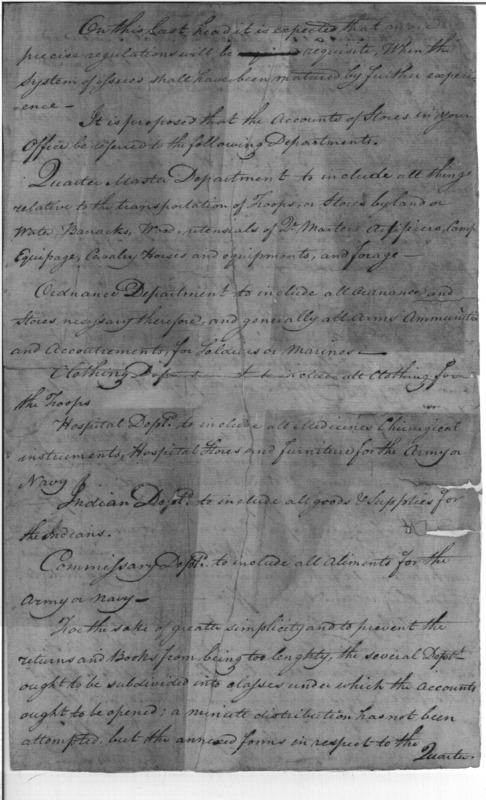 On this last head it is expected that more
precise regulations will be requisite, When the
System of issues shall have been matured by further experi-
ence —
It is proposed that the Accounts of Stores in your
Office be referred to the following Departments.
Quarter Master Department to include all things
relative to the transportation of Troops, or Stores by land or
Water, Barracks, Wood, utensials of Qr Masters Artificers, Camp
Equipage, Cavalry Horses and equipments, and forage —
Ordnance Department to include all ordnance, and
Stores, necessary therefore, and generally all Arms Ammunition
and Accoutrements, for Soldiers or Marines —
Clothing Depart to include all Clothing for
the Troops
Hospital Dept. to include all Medicines Chirurgical
instruments, Hospital Stores and furniture for the Army or
Navy
Indian Dept. to include all goods & Supplies for
the Indians.
Commissary Dept. to include all Aliments for the
Army or Navy —
For the sake of greater simplicity and to prevent the
returns and Books from being too lenghty, the several Depts.
ought to be subdivided into classes under which the Accounts
ought to be opened: a minute distribution has not been
attempted. but the annexed forms in respect to the
Quarter.